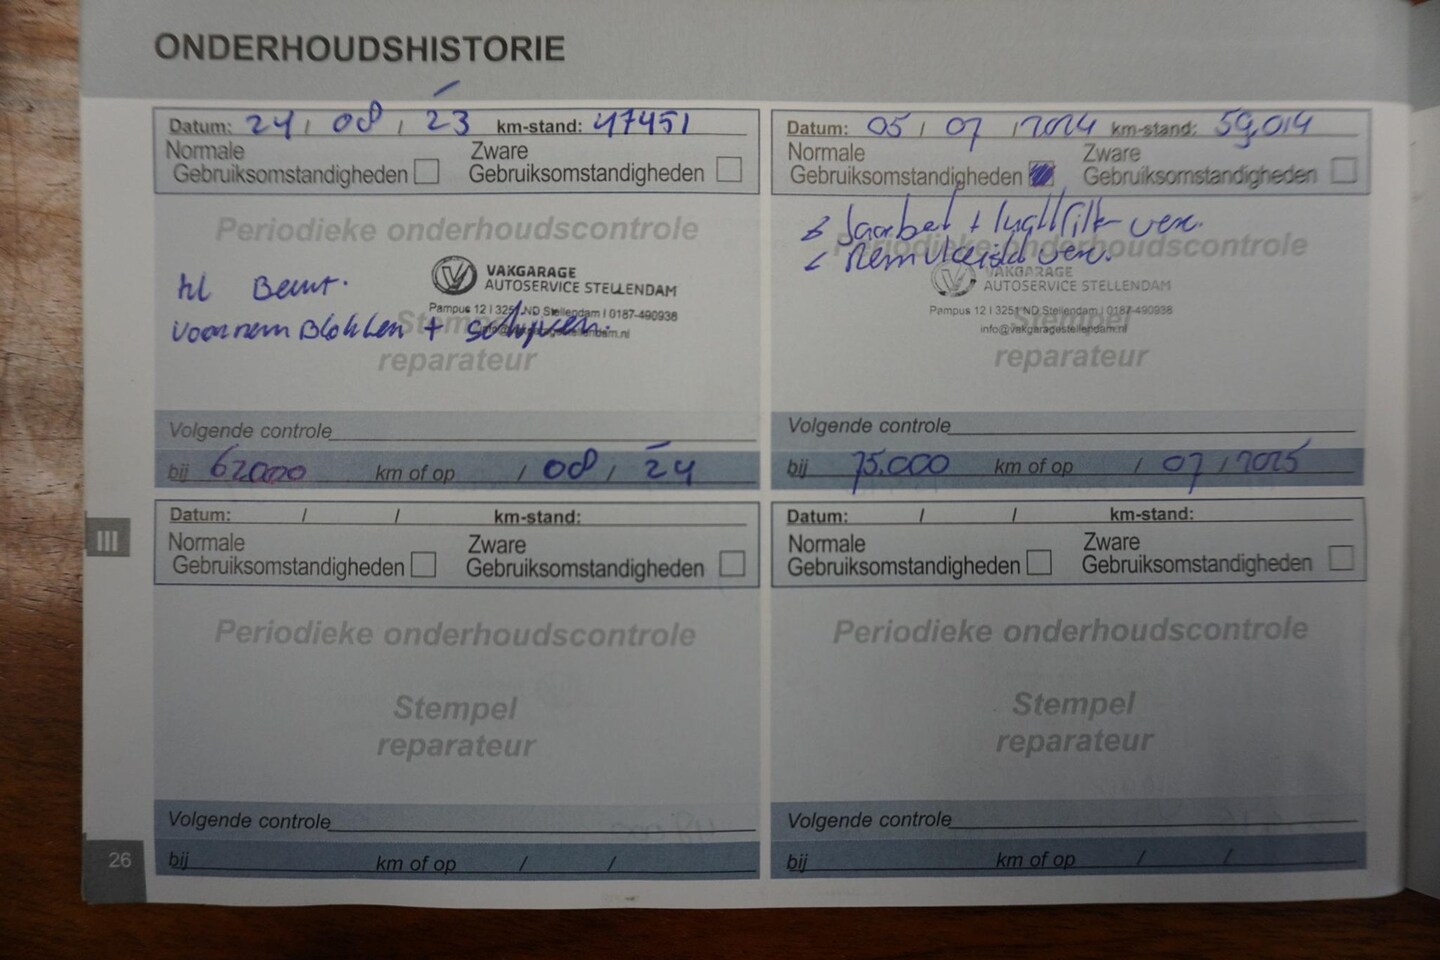 ONDERHOUDSHISTORIE
Datum: 24 / 08 / 23 km-stand: 47451
Normale Zware
Gebruiksomstandigheden Gebruiksomstandigheden
Periodieke onderhoudscontrole
VAKGARAGE
AUTOSERVICE STELLENDAM
Pampus 12 | 3251 ND Stellendam | 0187-490938
info@vakgaragestellendam.nl
voorremBlokken + schijven.
Stempel
reparateur
Volgende controle
bij 62000 km of op / 08 / 24
Datum: 05 / 07 / 2024 km-stand: 59,014
Normale Zware
Gebruiksomstandigheden Gebruiksomstandigheden
Periodieke onderhoudscontrole
+ luchtfilter ver.
Remvloeistof ver.
VAKGARAGE
AUTOSERVICE STELLENDAM
Pampus 12 | 3251 ND Stellendam | 0187-490938
info@vakgaragestellendam.nl
Stempel
reparateur
Volgende controle
bij 75.000 km of op / 07 / 2025
III
Datum: / / km-stand:
Normale Zware
Gebruiksomstandigheden Gebruiksomstandigheden
Periodieke onderhoudscontrole
Stempel
reparateur
Volgende controle
bij km of op / /
Datum: / / km-stand:
Normale Zware
Gebruiksomstandigheden Gebruiksomstandigheden
Periodieke onderhoudscontrole
Stempel
reparateur
Volgende controle
bij km of op / /
26